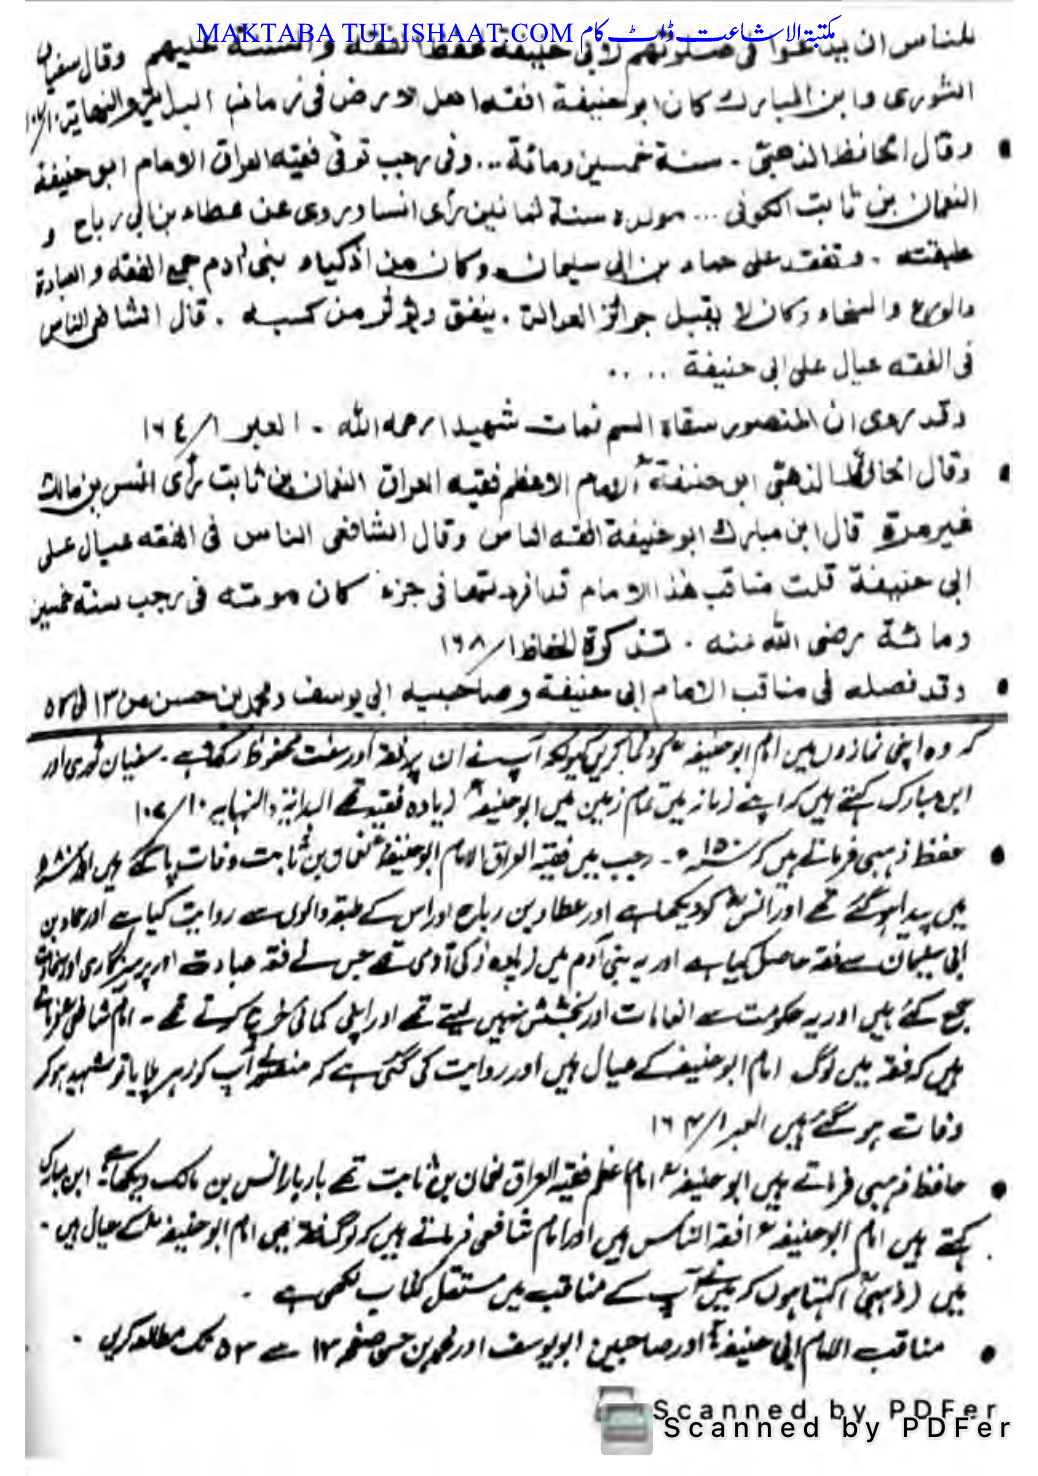 MAKTABA TUL ISHAAT.COM مکتبۃ الاشاعت ڈاٹ کام
للناس ان يدعوا فى صلوتهم لابى حنيفة لحفظه الفقه والسنة عليهم وقال سفيان
الثورى وابن المبارك كان ابو حنيفة افقه اهل الارض فى زمانه البداية والنهاية ١٠/١٠٧
• وقال الحافظ الذهبىؒ ۔ سنة خمسين ومائة ... وفى رجب توفى فقيه العراق الامام ابو حنيفة
النعمان بن ثابت الكوفى ... مولده سنة ثمانين رأى انسا وروى عن عطاء بن ابى رباح و
طبقته . وتفقه على حماد بن ابى سليمان وكان من اذكياء بنى آدم جمع الفقه والعبادة
والورع والسخاء وكان لا يقبل جوائز الدولة . ينفق ويؤثر من كسبه . قال الشافعى الناس
فى الفقه عيال على ابى حنيفة ....
وقد روى ان المنصور سقاه السم فمات شهيدا رحمه الله ۔ العبر ١/١٦٤
• وقال الحافظ الذهبىؒ ابو حنيفةؒ الامام الاعظم فقيه العراق النعمان بن ثابت رأى انس بن مالك
غير مرة قال ابن مبارك ابو حنيفة افقه الناس وقال الشافعى الناس فى الفقه عيال على
ابى حنيفة قلت مناقب هذا الامام قد افردتها فى جزء كان موته فى رجب سنة خمسين
ومائة رضى الله عنه . تذكرة الحفاظ ١/١٦٨
• وقد فصله فى مناقب الامام ابى حنيفة وصاحبيه ابى يوسف ومحمد بن حسن من ١٣ الى ٥٢
کہ وہ اپنی نمازوں میں امام ابو حنیفہؒ کو دعا کریں کیونکہ آپ نے ان پر فقہ اور سنت محفوظ رکھا ہے ۔ سفیان ثوری اور
ابن مبارک کہتے ہیں کہ اپنے زمانہ میں تمام زمین میں ابو حنیفہؒ زیادہ فقیہ تھے البدایۃ والنہایہ ١٠/١٠٧
• حفظ ذہبی فرماتے ہیں کہ سنہ ١٥٠ھ ۔ رجب میں فقیہ العراق الامام ابو حنیفہؒ نعمان بن ثابت وفات پا گئے ہیں اور سنہ ٨٠ھ
میں پیدا ہو گئے تھے اور انسؓ کو دیکھا ہے اور عطاء بن رباح اور اس کے طبقہ والوں سے روایت کیا ہے اور حماد بن
ابی سلیمان سے فقہ حاصل کیا ہے اور یہ بنی آدم میں زیادہ ذکی آدمی تھے جس نے فقہ عبادت اور پرہیزگاری اور سخاوت
جمع کئے ہیں اور یہ حکومت سے انعامات اور بخشش نہیں لیتے تھے اور اپنی کمائی خرچ کرتے تھے ۔ امام شافعی فرماتے
ہیں کہ فقہ میں لوگ امام ابو حنیفہ کے عیال ہیں اور روایت کی گئی ہے کہ منصور نے آپ کو زہر پلایا تو شہید ہو کر
وفات ہو گئے ہیں العبر ١/١٦٤
• حافظ ذہبی فرماتے ہیں ابو حنیفہؒ امام اعظم فقیہ العراق نعمان بن ثابت تھے بار بار انس بن مالک دیکھا ہے ۔ ابن مبارک
کہتے ہیں امام ابو حنیفہؒ افقہ الناس ہیں اور امام شافعی فرماتے ہیں کہ لوگ فقہ میں امام ابو حنیفہؒ کے عیال ہیں ۔
میں (ذہبیؒ) کہتا ہوں کہ میں نے آپ کے مناقب میں مستقل کتاب لکھی ہے ۔
• مناقب الامام ابی حنیفہؒ اور صاحبین ابو یوسف اور محمد بن حسن صفحہ ١٣ سے ٥٢ تک مطالعہ کریں ۔
Scanned by PDFer
Scanned by PDFer